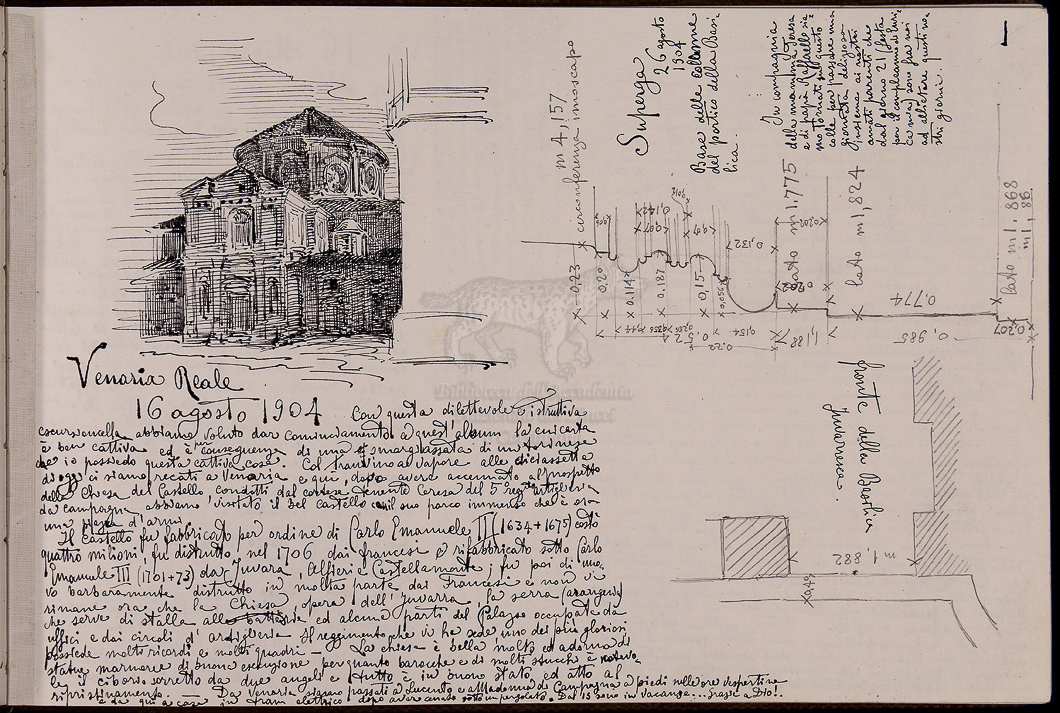 Venaria Reale
16 agosto 1904 Con questa dilettevole e istruttiva
escursioncella abbiamo voluto dar cominciamento a quest'album la cui carta
è ben cattiva ed è conseguenza di una smargiassata di un torinese
che io possiedo questa cattiva cosa. Col tranvino a vapore alle diciassette
di oggi ci siamo recati a Venaria e qui, dopo avere accennato al prospetto
della Chiesa del Castello, condotti dal cortese tenente Ceresa del 5 regg. artiglieria
da campagna abbiamo visitato il bel castello col suo parco immenso che è ora
una piazza d'armi.
Il castello fu fabbricato per ordine di Carlo Emanuele II (1634+1675) costò
quattro milioni, fu distrutto, nel 1706 dai francesi e rifabbricato sotto Carlo
Emanuele III (1701+73) da Juvara, Alfieri e Castellamonte; fu poi di nuo-
vo barbaramente distrutto in molta parte dai Francesi e non vi
rimane ora che la Chiesa, opera dell'Juvarra, la serra (aranceria)
che serve di stalla alle batterie ed alcune parti del Palazzo occupate da
uffici e dai circoli d'artiglieria. Il reggimento che vi ha sede uno dei più gloriosi
possiede molti ricordi e molti quadri — La chiesa è bella molto ed adorna di
statue marmoree di buona esecuzione per quanto barocche e di molti stucchi è notevo-
le il ciborio sorretto da due angeli e tutto è in buono stato, ed atto al
ripristinamento. — Da Venaria siamo passati a Lucento e alla Madonna di Campagna a piedi nelle ore vespertine
e da qui a casa in tram elettrico dopo avere cenato sotto un pergolato. Dal 15 sono in vacanza... grazie a Dio!
Superga
26 agosto
1904
Base delle colonne
del portico della Basi
lica.
In compagnia
della mamma Teresa
e di papà Raffaello sia-
mo tornati sul questo
colle per passare una
giornata deliziosa
insieme ai nostri
amati parenti che
dal giorno 21 (festa
per il compleanno di Luri
ca mia) sono fra noi
ad allietare questi no-
stri giorni.
1
m 4,157
circonferenza imoscapo
0,23
0,20
0,114
0,187
0,15
0,056
0,142
0,07
0,07
0,132
0,202
0,202
0,154
0,22
0,524
1,188
lato m 1.775
lato m 1,824
0,774
0,985
lato m 1.868
m 1,86
0,207
Pronte della Basilica
Juvaresca.
m 1,882
lato
Biblioteca dell'Accademia